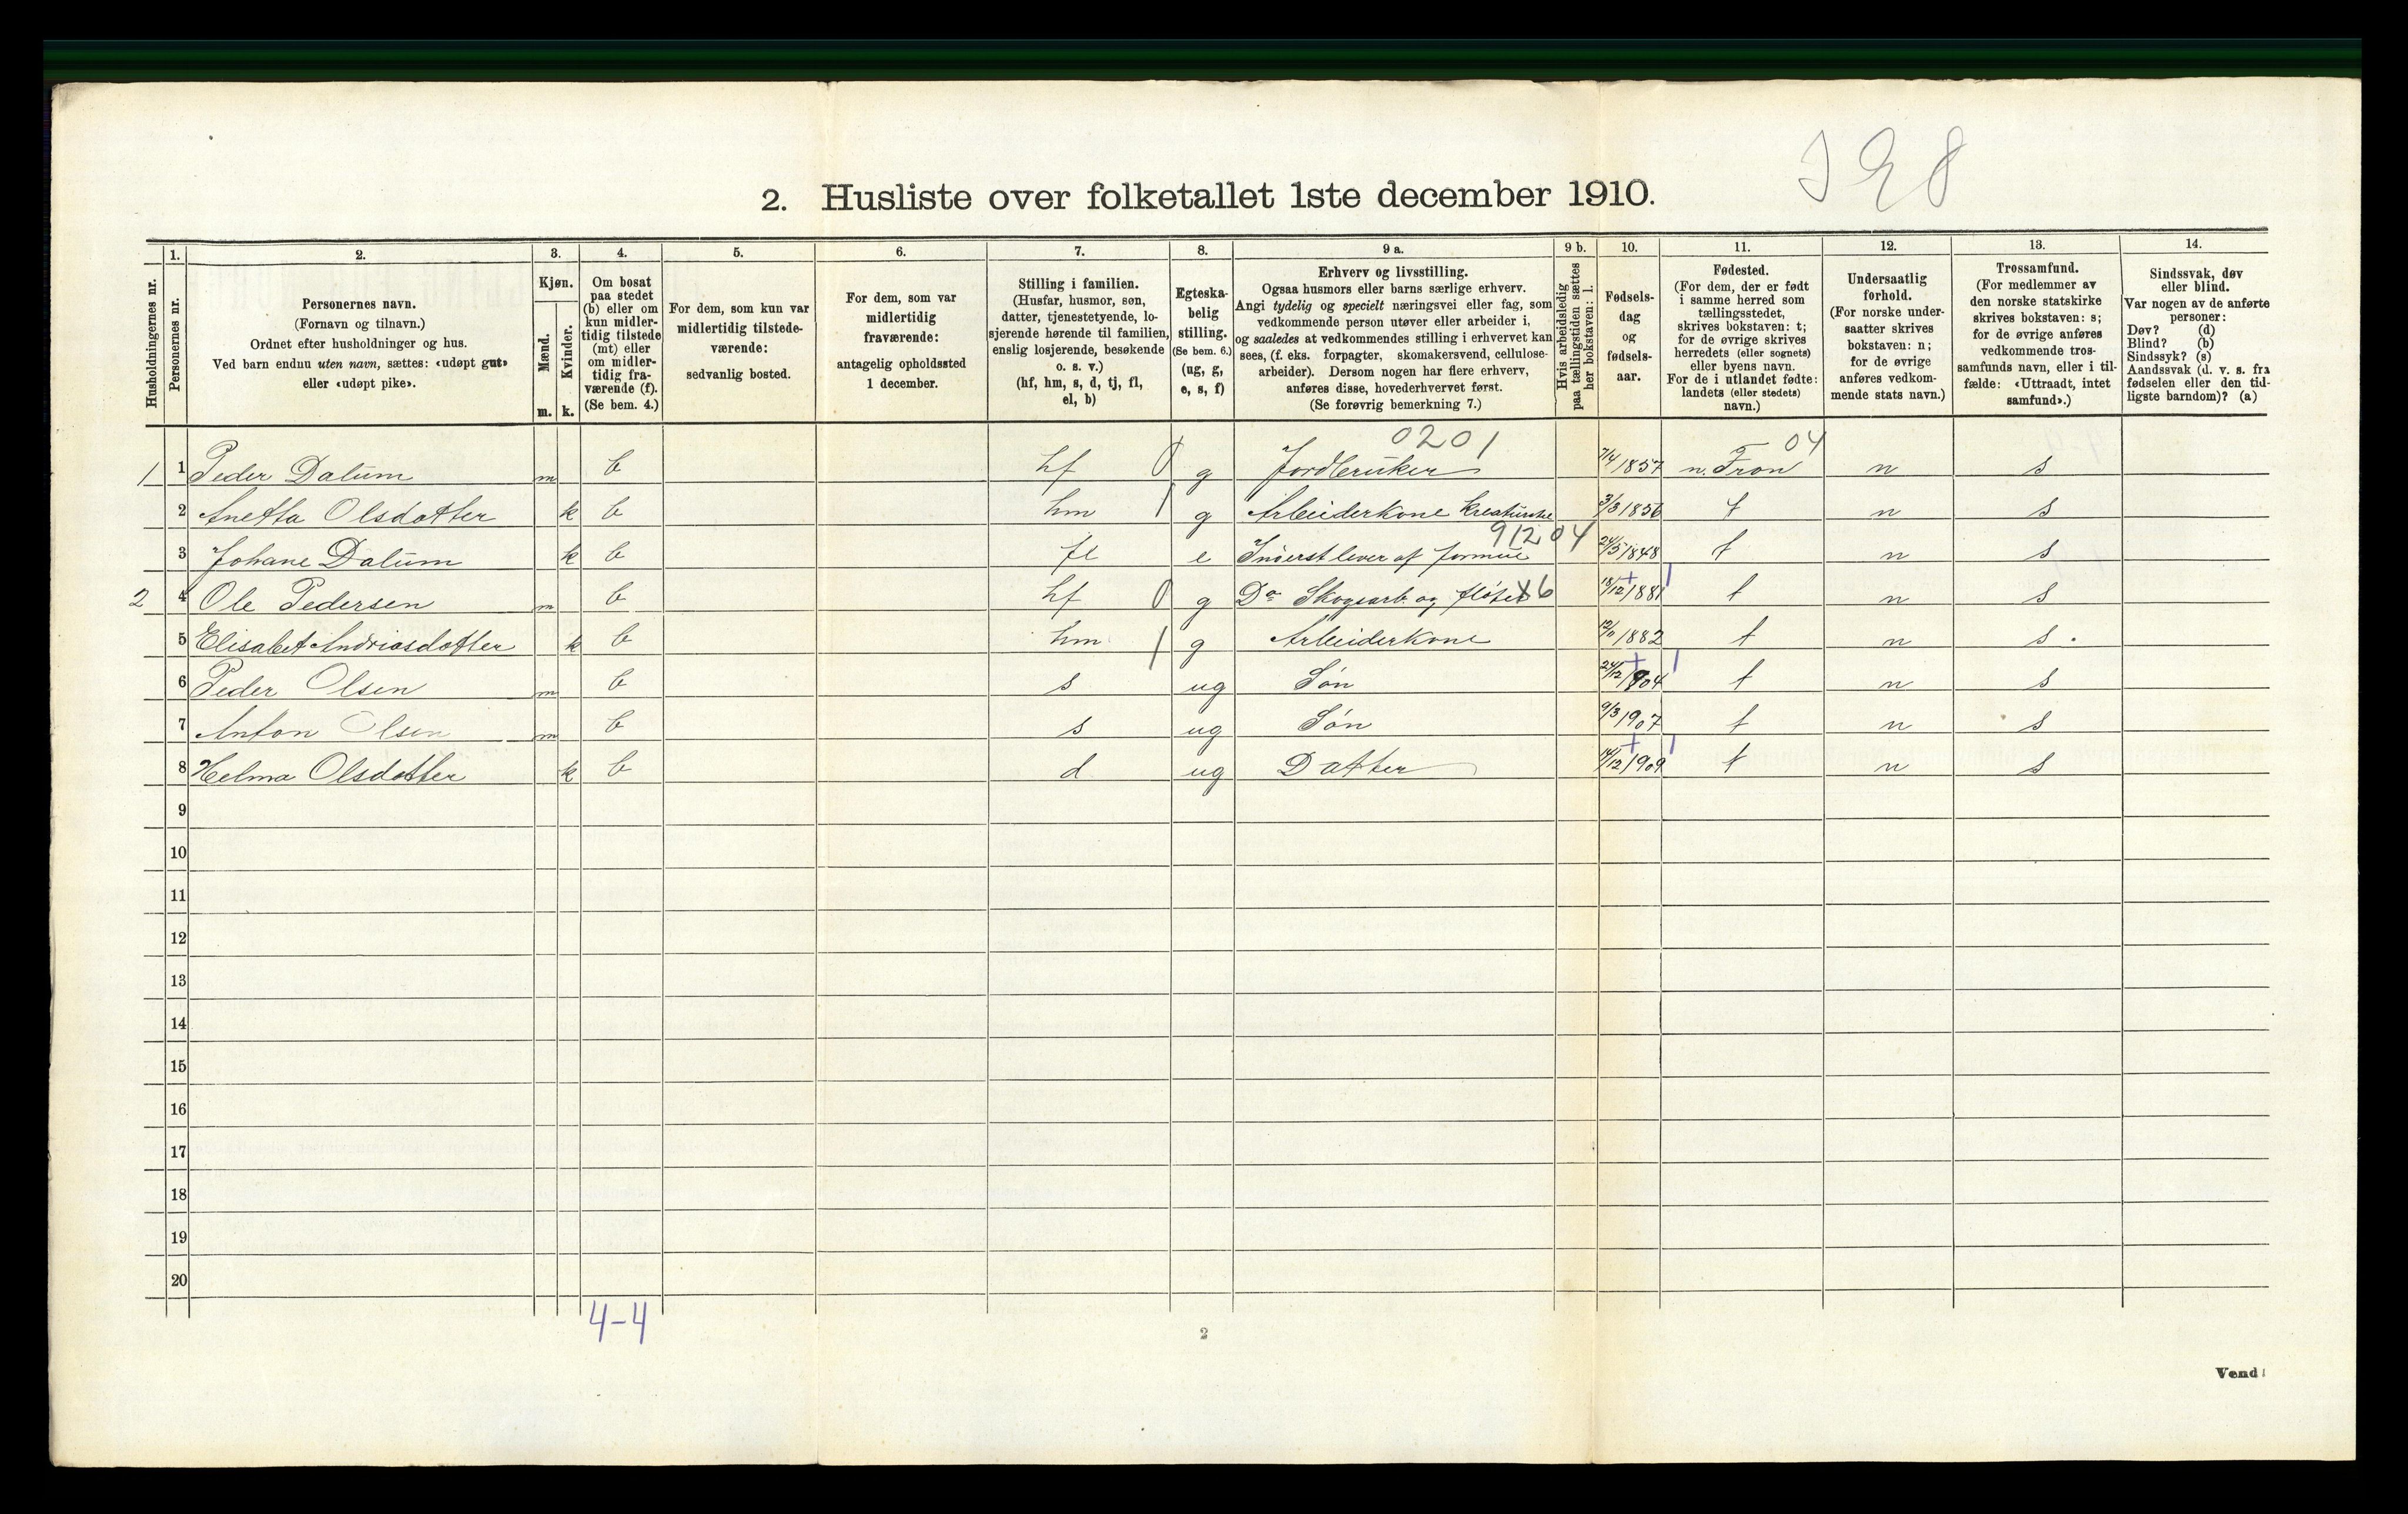 2. Husliste over folketallet 1ste december 1910.
Husholdningernes nr.
1. Personernes nr.
2. Personernes navn. (Fornavn og tilnavn.) Ordnet efter husholdninger og hus. Ved barn endnu uten navn, sættes: «udøpt gut» eller «udøpt pike».
3. Kjøn. Mænd. m. Kvinder. k.
4. Om bosat paa stedet (b) eller om kun midlertidig tilstede (mt) eller om midlertidig fraværende (f). (Se bem. 4.)
5. For dem, som kun var midlertidig tilstedeværende: sedvanlig bosted.
6. For dem, som var midlertidig fraværende: antagelig opholdssted 1 december.
7. Stilling i familien. (Husfar, husmor, søn, datter, tjenestetyende, losjerende hørende til familien, enslig losjerende, besøkende o. s. v.) (hf, hm, s, d, tj, fl, el, b)
8. Egteskabelig stilling. (Se bem. 6.) (ug, g, e, s, f)
9 a. Erhverv og livsstilling. Ogsaa husmors eller barns særlige erhverv. Angi tydelig og specielt næringsvei eller fag, som vedkommende person utøver eller arbeider i, og saaledes at vedkommendes stilling i erhvervet kan sees, (f. eks. forpagter, skomakersvend, cellulosearbeider). Dersom nogen har flere erhverv, anføres disse, hovederhvervet først. (Se forøvrig bemerkning 7.)
9 b. Hvis arbeidsledig paa tællingstiden sættes her bokstaven: l.
10. Fødselsdag og fødselsaar.
11. Fødested. (For dem, der er født i samme herred som tællingsstedet, skrives bokstaven: t; for de øvrige skrives herredets (eller sognets) eller byens navn. For de i utlandet fødte: landets (eller stedets) navn.)
12. Undersaatlig forhold. (For norske undersaatter skrives bokstaven: n; for de øvrige anføres vedkommende stats navn.)
13. Trossamfund. (For medlemmer av den norske statskirke skrives bokstaven: s; for de øvrige anføres vedkommende trossamfunds navn, eller i tilfælde: «Uttraadt, intet samfund».)
14. Sindssvak, døv eller blind. Var nogen av de anførte personer: Døv? (d) Blind? (b) Sindssyk? (s) Aandssvak (d. v. s. fra fødselen eller den tidligste barndom)? (a)
0201 04
1 1 Peder Dalum m b hf 0 g Jordbruker 7/4 1857 n. Fron n s
2 Anetta Olsdatter k b hm 1 g Arbeiderkone 3/3 1856 t n s
91204
3 Johane Dalum k b fl e Inderst lever af formue 24/5 1848 t n s
2 4 Ole Pedersen m b hf 0 g Do Skogsarb. og fløter X6 18/12 1881 t n s
5 Elisabet Andriasdatter k b hm 1 g Arbeiderkone 12/11 1882 t n s
6 Peder Olsen m b s ug Søn 24/12 1904 t n s
7 Anton Olsen m b s ug Søn 9/3 1907 t n s
8 Helma Olsdatter k b d ug Datter 14/12 1909 t n s
9
10
11
12
13
14
15
16
17
18
19
20
4-4
2
Vend!